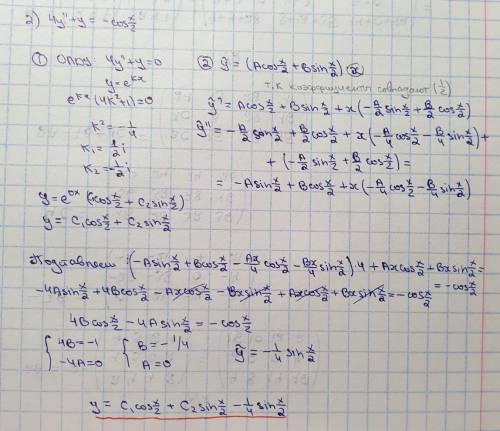 2) 4y''+y = -cos x/2
① ОЛОУ 4y''+y=0
y=e^{kx}
e^{kx}(4k²+1)=0
k²=-1/4
k₁=1/2 i
k₂=-1/2 i
y=e^{0x}(c₁cos x/2 + C₂sin x/2)
y = C₁cos x/2 + C₂sin x/2
② ỹ = (Acos x/2 + Bsin x/2) x
т.к коэффициенты совпадают (1/2)
ỹ' = Acos x/2 + Bsin x/2 + x(-A/2 sin x/2 + B/2 cos x/2)
ỹ'' = -A/2 sin x/2 + B/2 cos x/2 + x(-A/4 cos x/2 - B/4 sin x/2) +
+ (-A/2 sin x/2 + B/2 cos x/2) =
= -Asin x/2 + Bcos x/2 + x(-A/4 cos x/2 - B/4 sin x/2)
Подставляем: (-Asin x/2 + Bcos x/2 - Ax/4 cos x/2 - Bx/4 sin x/2)·4 + Axcos x/2 + Bxsin x/2 =
= -cos x/2
-4Asin x/2 + 4Bcos x/2 - Axcos x/2 - Bxsin x/2 + Axcos x/2 + Bxsin x/2 = -cos x/2
4Bcos x/2 - 4Asin x/2 = -cos x/2
{4B=-1 {B=-1/4
{-4A=0 {A=0
ỹ = -1/4 sin x/2
y = C₁cos x/2 + C₂sin x/2 - 1/4 sin x/2